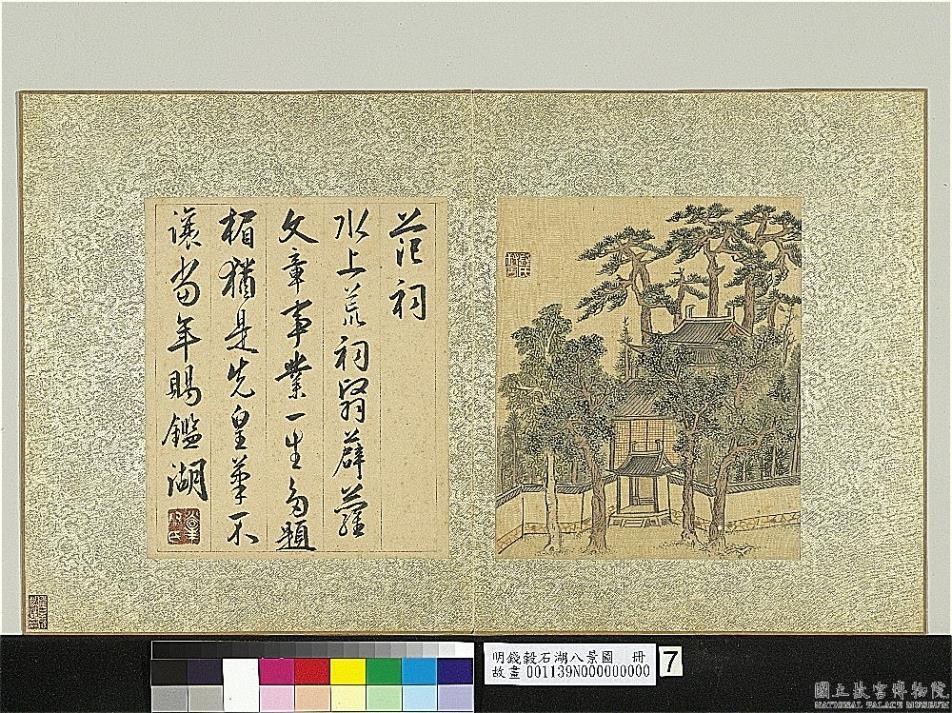 范祠
水上荒祠翳薜蘿
文章事業一生多題
楣猶是先皇筆不
讓當年賜鑑湖
明錢穀石湖八景圖　冊
故畫 001139N000000000
7
國立故宮博物院
NATIONAL PALACE MUSEUM